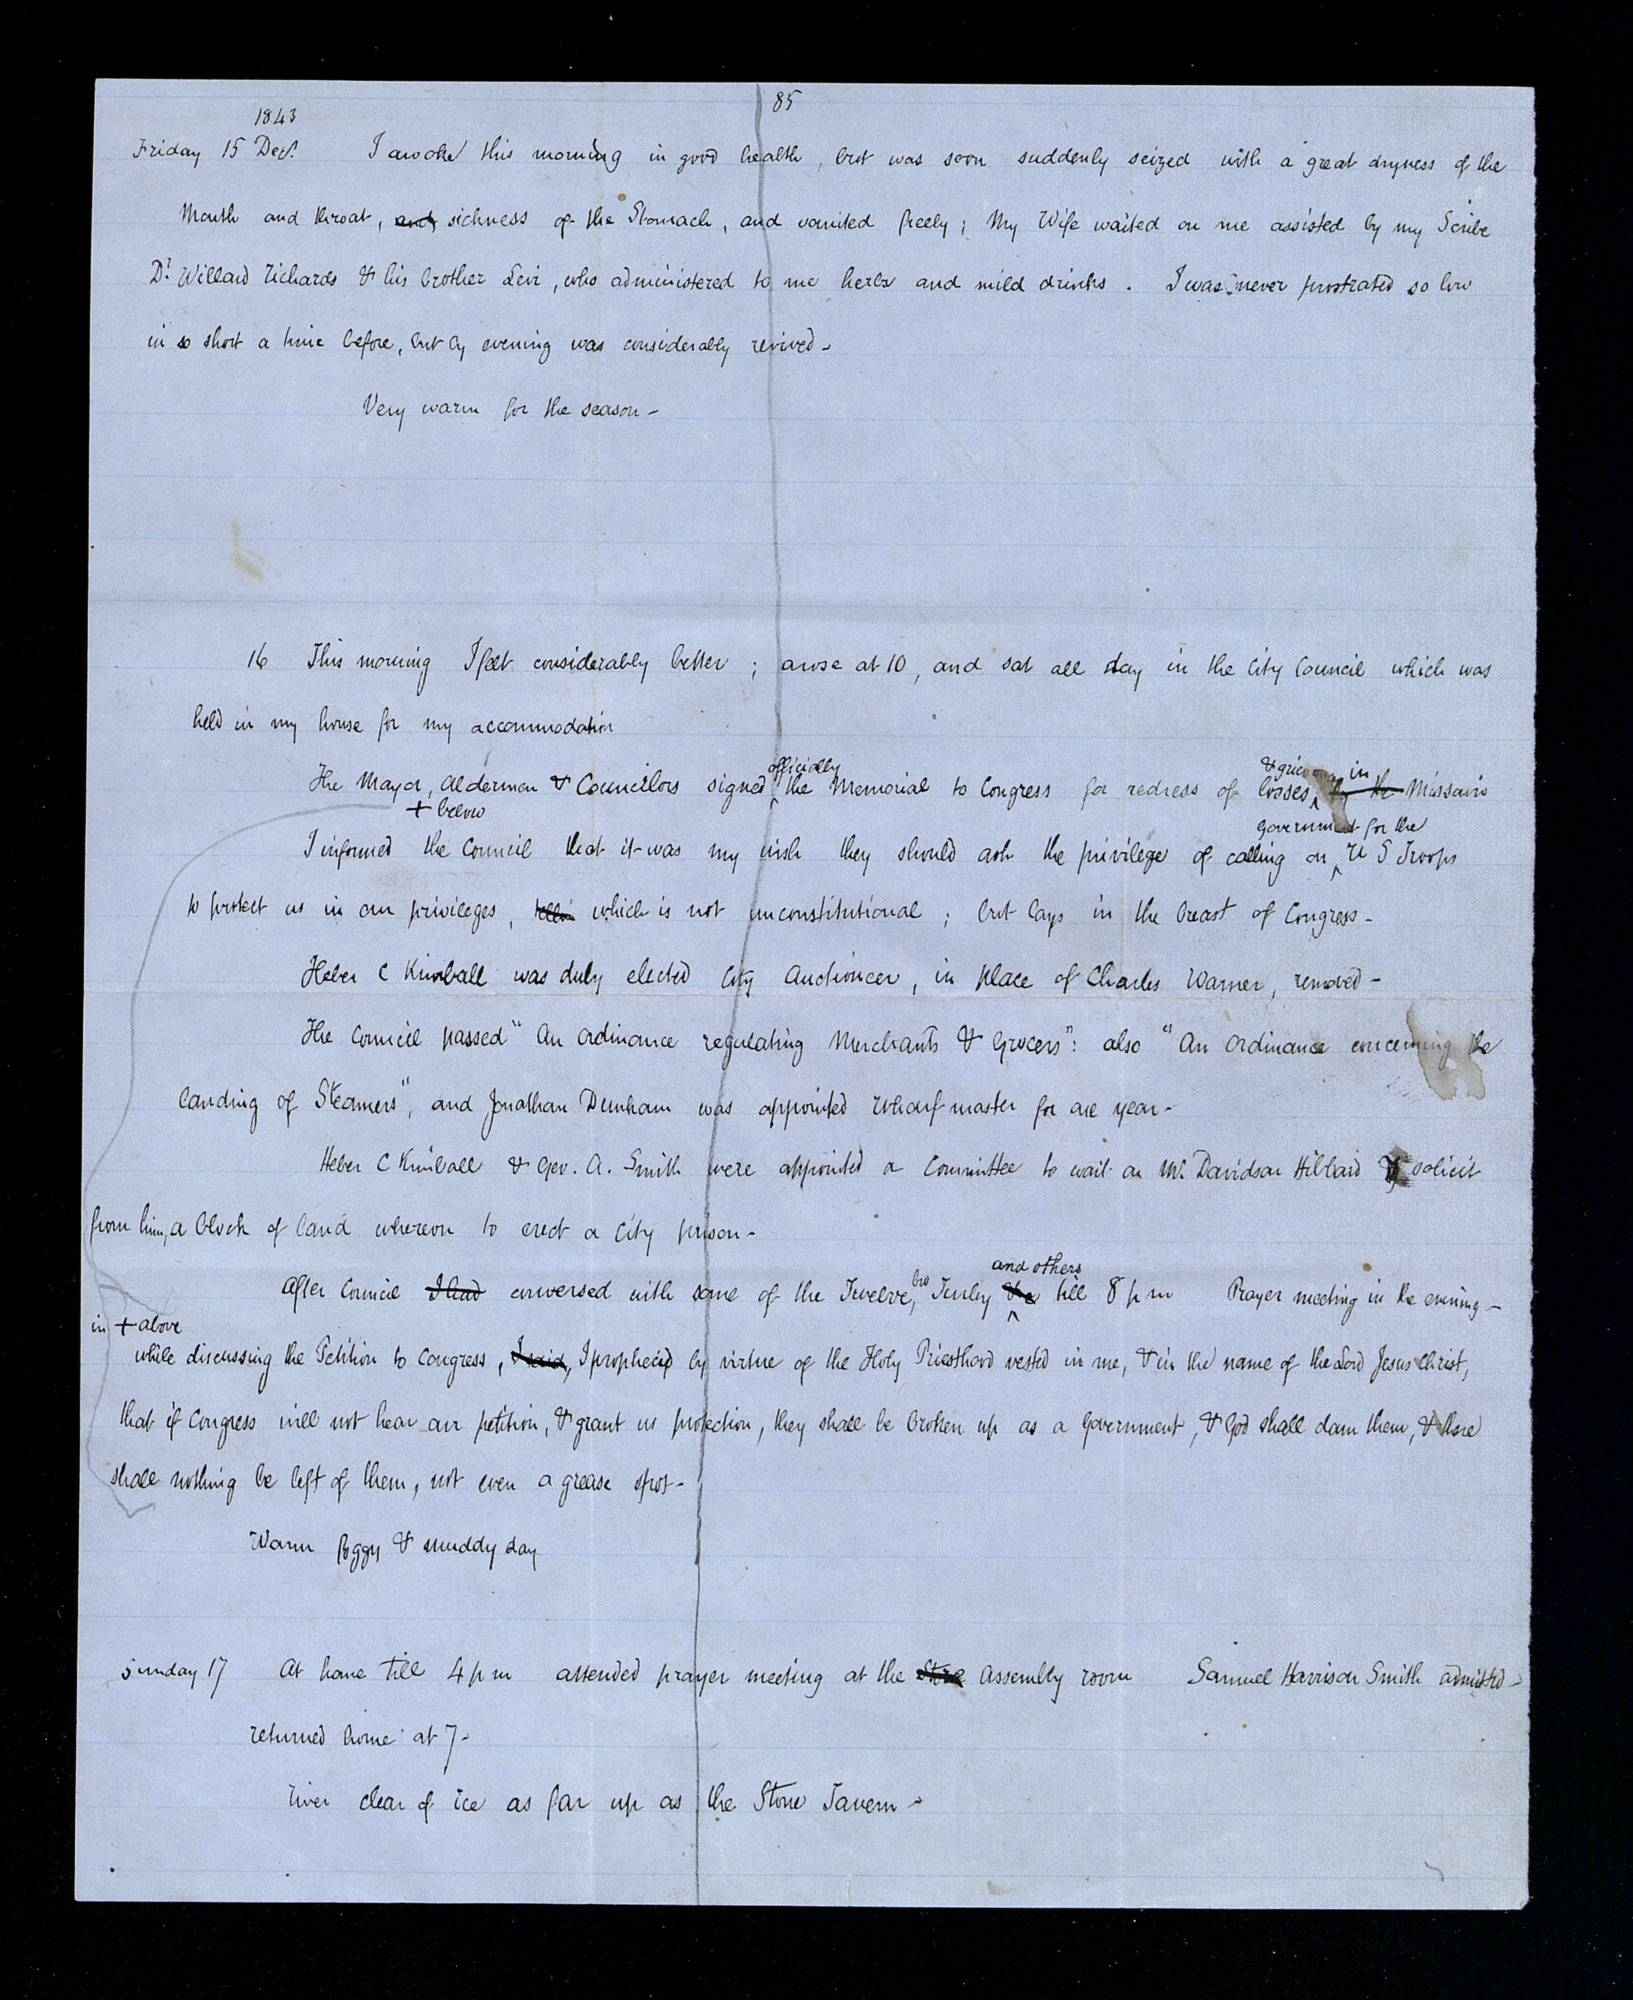 85
1843
Friday 15 Decr. I awoke this morning in good health, but was soon suddenly seized with a great dryness of the
Mouth and throat, and sickness of the Stomach, and vomited freely; My Wife waited on me assisted by my Scribe
Dr Willard Richards & his brother Levi, who administered to me herbs and mild drinks. I was never prostrated so low
in so short a time before, but by evening was considerably revived-
Very warm for the season-
16 This morning I felt considerably better; arose at 10, and sat all day in the City Council which was
held in my house for my accommodation
officially & grievances in
The Mayor, Aldermen & Councilors signed the Memorial to Congress for redress of losses by the Missouri
+ below government for the
I informed the Council that it was my wish they should ask the privilege of calling on U S Troops
to protect us in our privileges, which is not unconstitutional; but lays in the breast of Congress-
Heber C Kimball was duly elected City Auctioneer, in place of Charles Warner, removed-
The Council passed "An ordinance regulating Merchants & Grocers": also "An ordinance concerning the
landing of Steamers", and Jonathan Dunham was appointed Wharf master for one year-
Heber C Kimball & Geo. A. Smith were appointed a Committee to wait on Mr. Davidson Hibbard & solicit
from him, a block of land whereon to erect a City prison-
and others
After Council I had conversed with some of the Twelve, bro Turley &c till 8 p m Prayer meeting in the evening-
in + above
while discussing the Petition to Congress, I said, I prophecied by virtue of the Holy Priesthood vested in me, & in the name of the Lord Jesus Christ,
that if Congress will not hear our petition, & grant us protection, they shall be broken up as a government, & God shall dam them, & there
shall nothing be left of them, not even a grease spot-
Warm foggy & muddy day
Sunday 17 At home till 4 p m attended prayer meeting at the Store Assembly room Samuel Harrison Smith admitted-
returned home at 7-
River clear of ice as far up as the Stone Tavern-